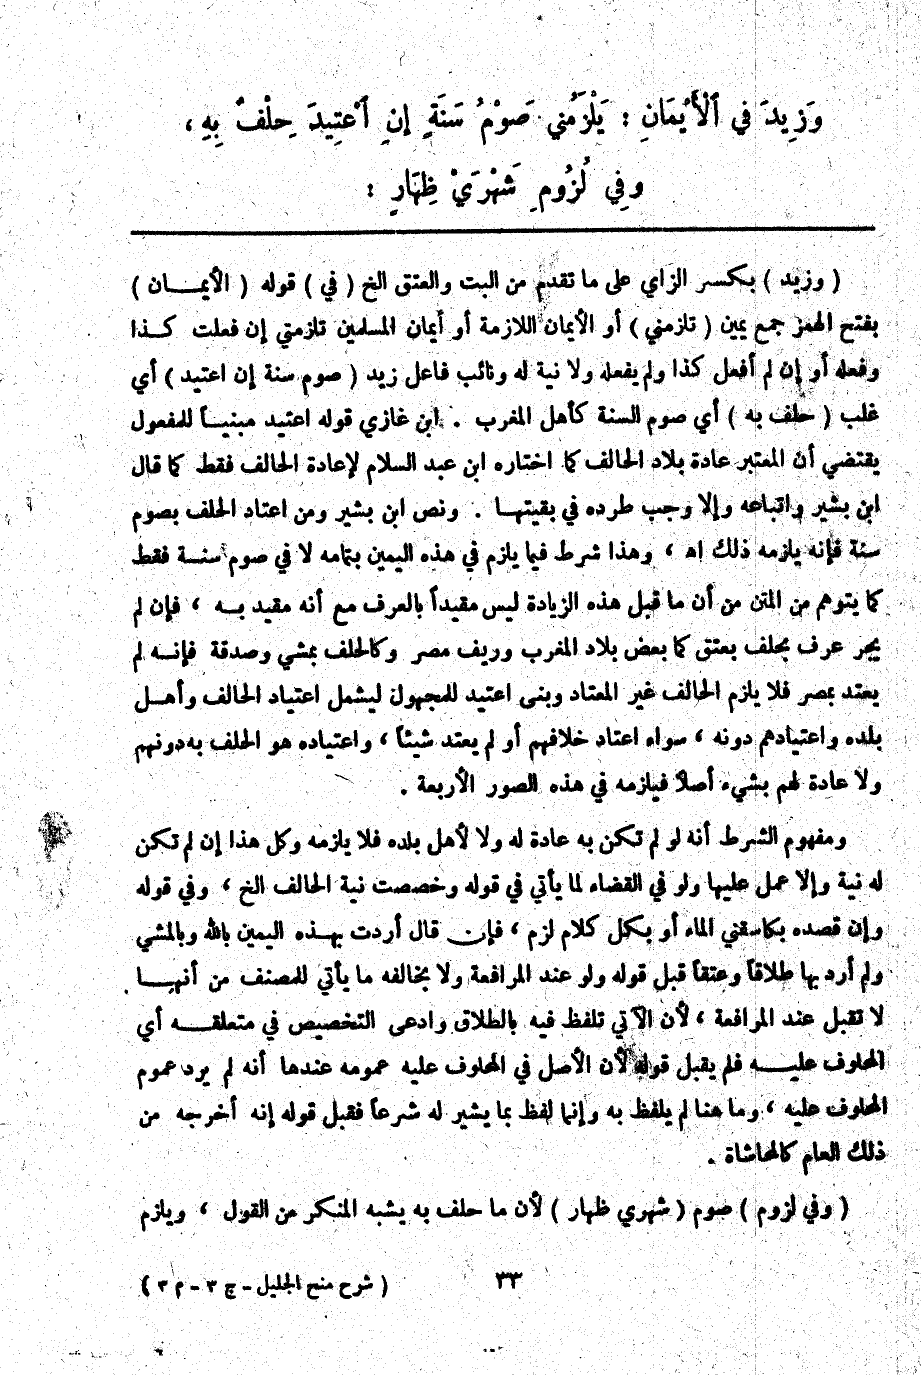 وَزِيدَ فِي ٱلْأَيْمَانِ : يَلْزَمُنِي صَوْمُ سَنَةٍ إِنِ ٱعْتِيدَ حِلْفٌ بِهِ ،
وفِي لُزُومِ شَهْرَيْ ظِهَارٍ :
( وزيد ) بكسر الزاي على ما تقدم من البت والعتق الخ ( في ) قوله ( الأيمان )
بفتح الهمز جمع يمين ( تلزمني ) أو الأيمان اللازمة أو أيمان المسلمين تلزمني إن فعلت كذا
وفعله أو إن لم أفعل كذا ولم يفعله ولا نية له ونائب فاعل زيد ( صوم سنة إن اعتيد ) أي
غلب ( حلف به ) أي صوم السنة كأهل المغرب . ابن غازي قوله اعتيد مبنياً للمفعول
يقتضي أن المعتبر عادة بلاد الحالف كما اختاره ابن عبد السلام لإعادة الحالف فقط كما قال
ابن بشير واتباعه وإلا وجب طرده في بقيتها . ونص ابن بشير ومن اعتاد الحلف بصوم
سنة فإنه يلزمه ذلك اه ، وهذا شرط فيما يلزم في هذه اليمين بتمامه لا في صوم سنة فقط
كما يتوهم من المتن من أن ما قبل هذه الزيادة ليس مقيداً بالعرف مع أنه مقيد به ، فإن لم
يجر عرف بحلف بعتق كما بعض بلاد المغرب وريف مصر وكالحلف بمشي وصدقة فإنه لم
يعتد بمصر فلا يلزم الحالف غير المعتاد وبنى اعتيد للمجهول ليشمل اعتياد الحالف وأهل
بلده واعتيادهم دونه ، سواء اعتاد خلافهم أو لم يعتد شيئاً ، واعتياده هو الحلف به دونهم
ولا عادة لهم بشيء أصلاً فيلزمه في هذه الصور الأربعة .
ومفهوم الشرط أنه لو لم تكن به عادة له ولا لأهل بلده فلا يلزمه وكل هذا إن لم تكن
له نية وإلا عمل عليها ولو في القضاء لما يأتي في قوله وخصصت نية الحالف الخ ، وفي قوله
وإن قصده بكاسقني الماء أو بكل كلام لزم ، فإن قال أردت بهذه اليمين بالله وبالمشي
ولم أرد بها طلاقاً وعتقاً قبل قوله ولو عند المرافعة ولا يخالفه ما يأتي للمصنف من أنها
لا تقبل عند المرافعة ، لأن الآتي تلفظ فيه بالطلاق وادعى التخصيص في متعلقه أي
المحلوف عليه فلم يقبل قوله لأن الأصل في المحلوف عليه عمومه عندها أنه لم يرد عموم
المحلوف عليه ، وما هنا لم يلفظ به وإنما لفظ بما يشير له شرعاً فقبل قوله إنه أخرجه من
ذلك العام كالمحاشاة .
( وفي لزوم ) صوم ( شهري ظهار ) لأن ما حلف به يشبه المنكر من القول ، ويلزم
٣٣
( شرح منح الجليل - ج ٣ - م ٣ )